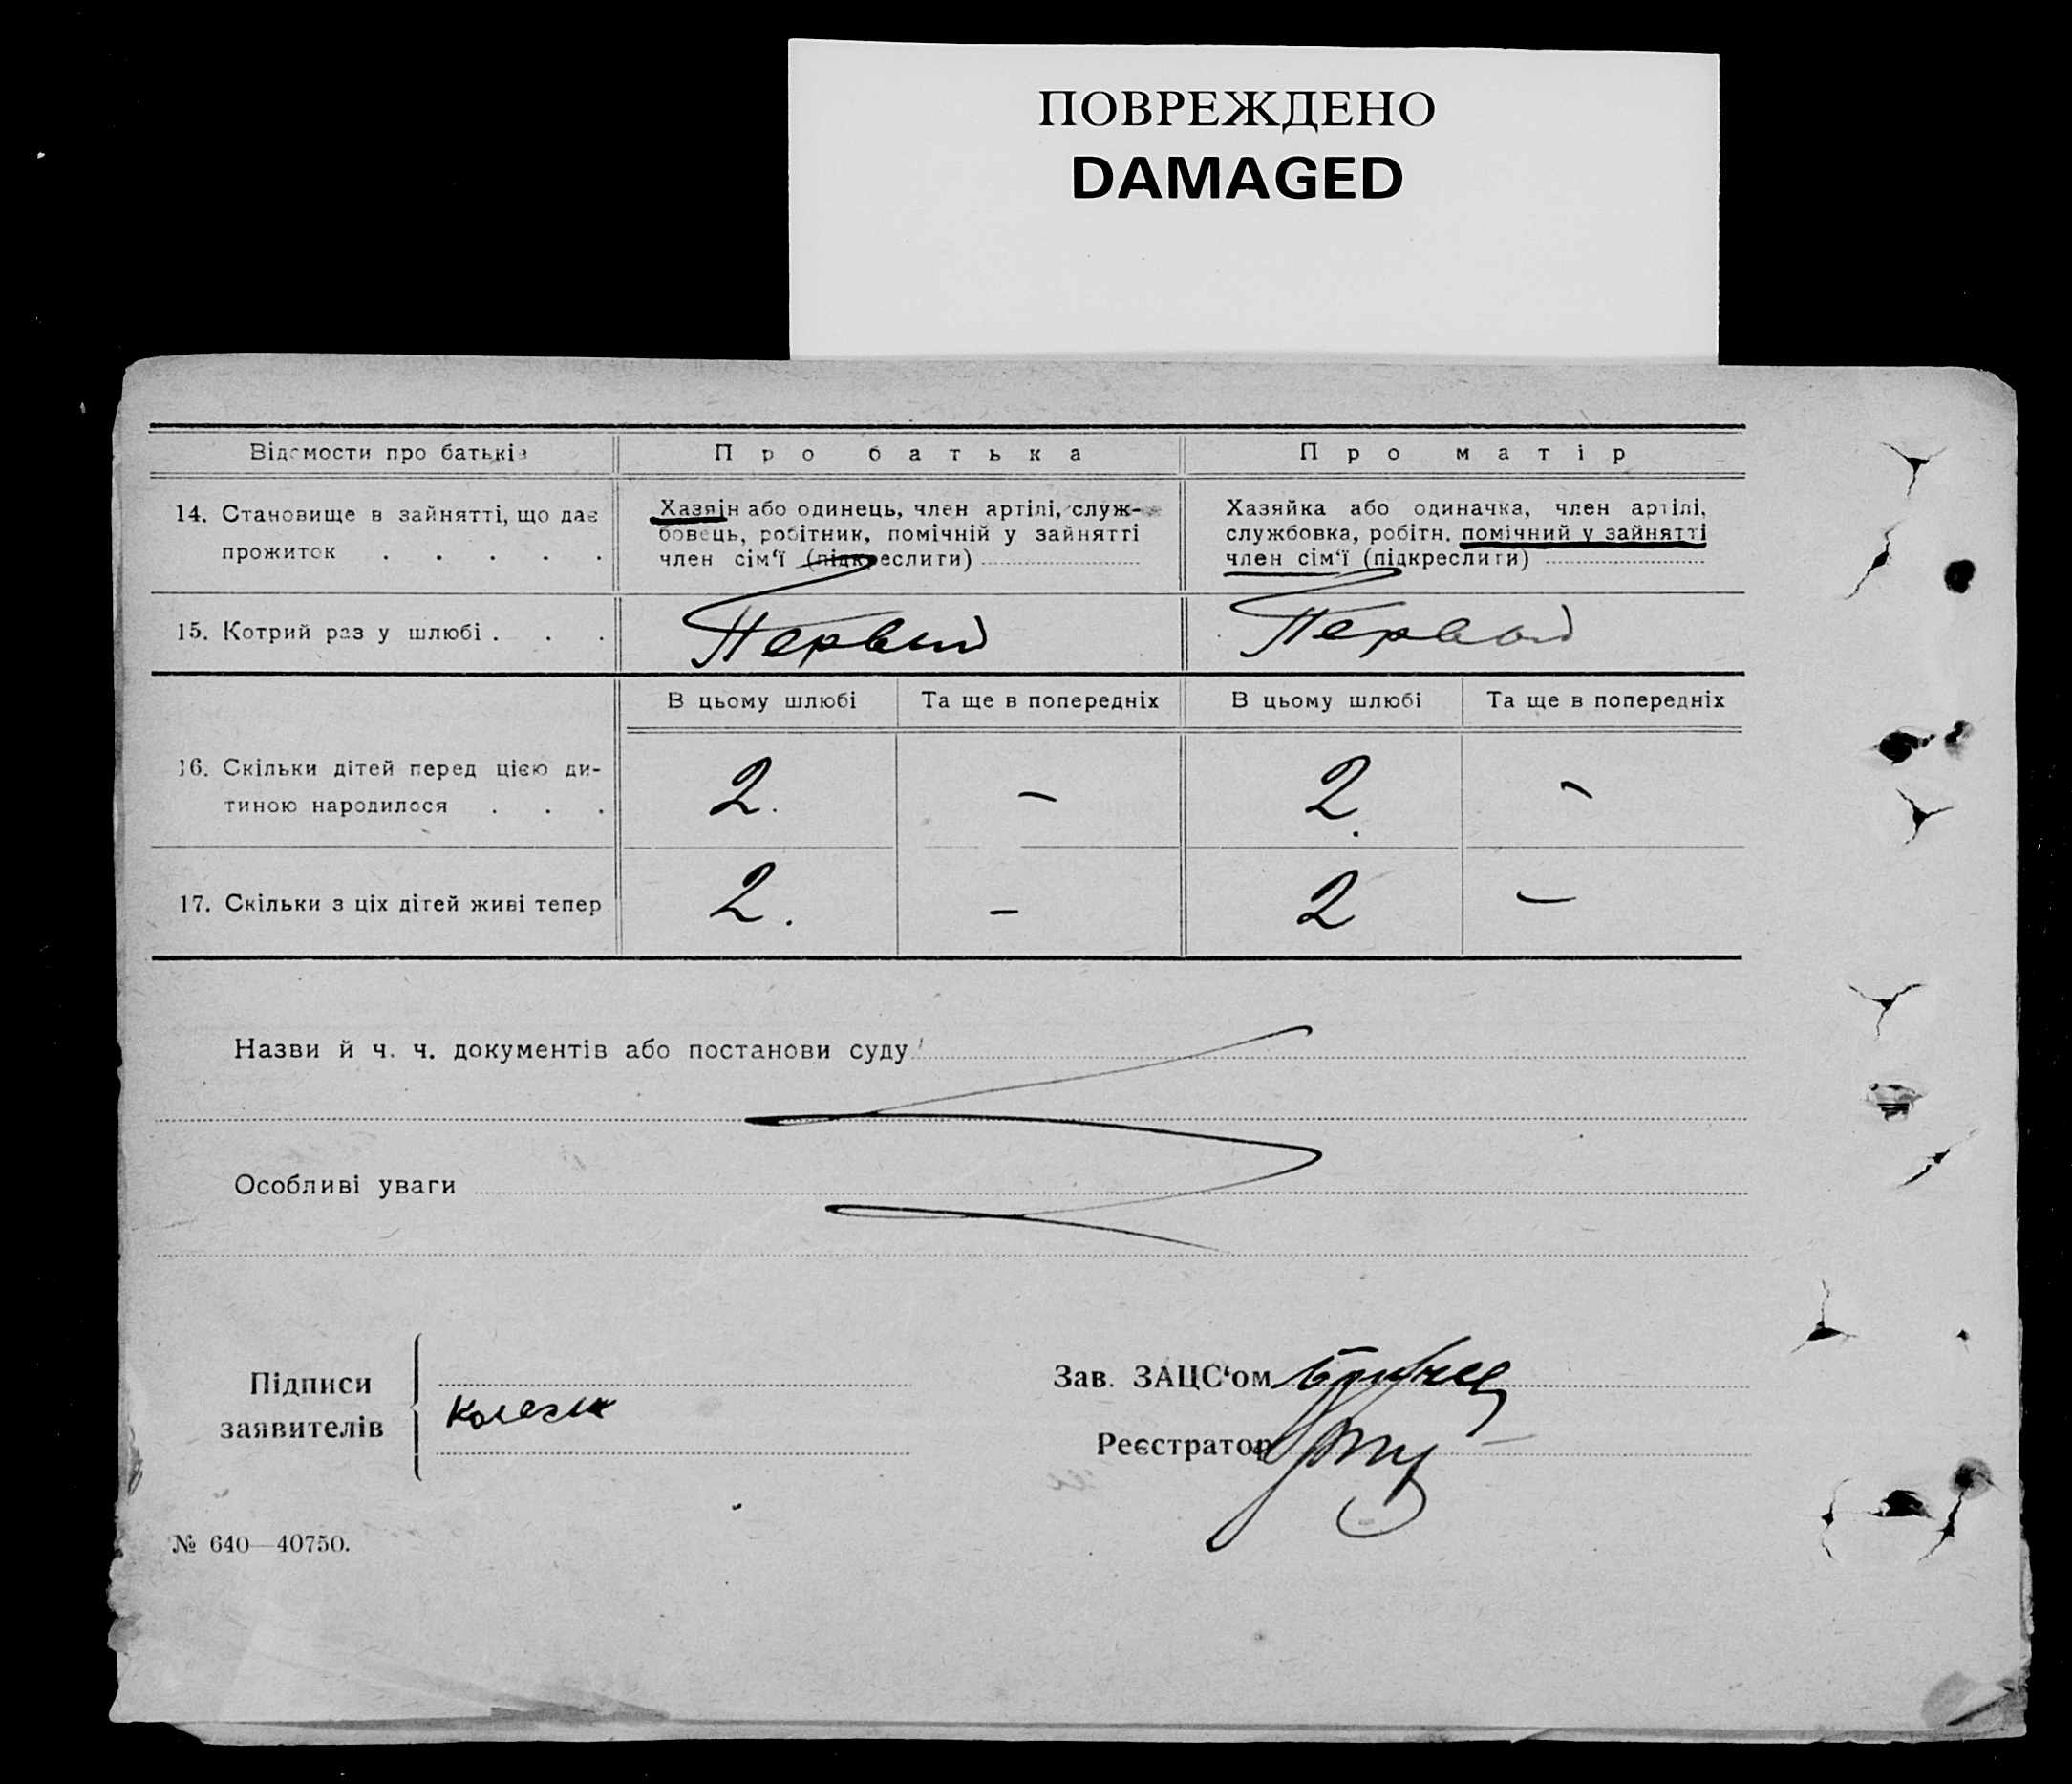 ПОВРЕЖДЕНО
DAMAGED
Відомости про батьків
Про батька
Про матір
14. Становище в зайнятті, що дає
прожиток . . . . .
Хазяін або одинець, член артілі, служ-
бовець, робітник, помічній у зайнятті
член сім‘ї (підкреслити)
Хазяйка або одиначка, член артілі,
службовка, робітн. помічний у зайнятті
член сім‘ї (підкреслити)
15. Котрий раз у шлюбі . . .
Первый
Первый
В цьому шлюбі
Та ще в попередніх
В цьому шлюбі
Та ще в попередніх
16. Скільки дітей перед цією ди-
тиною народилося . . .
2.
–
2.
–
17. Скільки з ціх дітей живі тепер
2.
–
2
–
Назви й ч. ч. документів або постанови суду
Особливі уваги
Підписи
заявителів
Зав. ЗАЦС‘ом
Реєстратор
№ 640—40750.